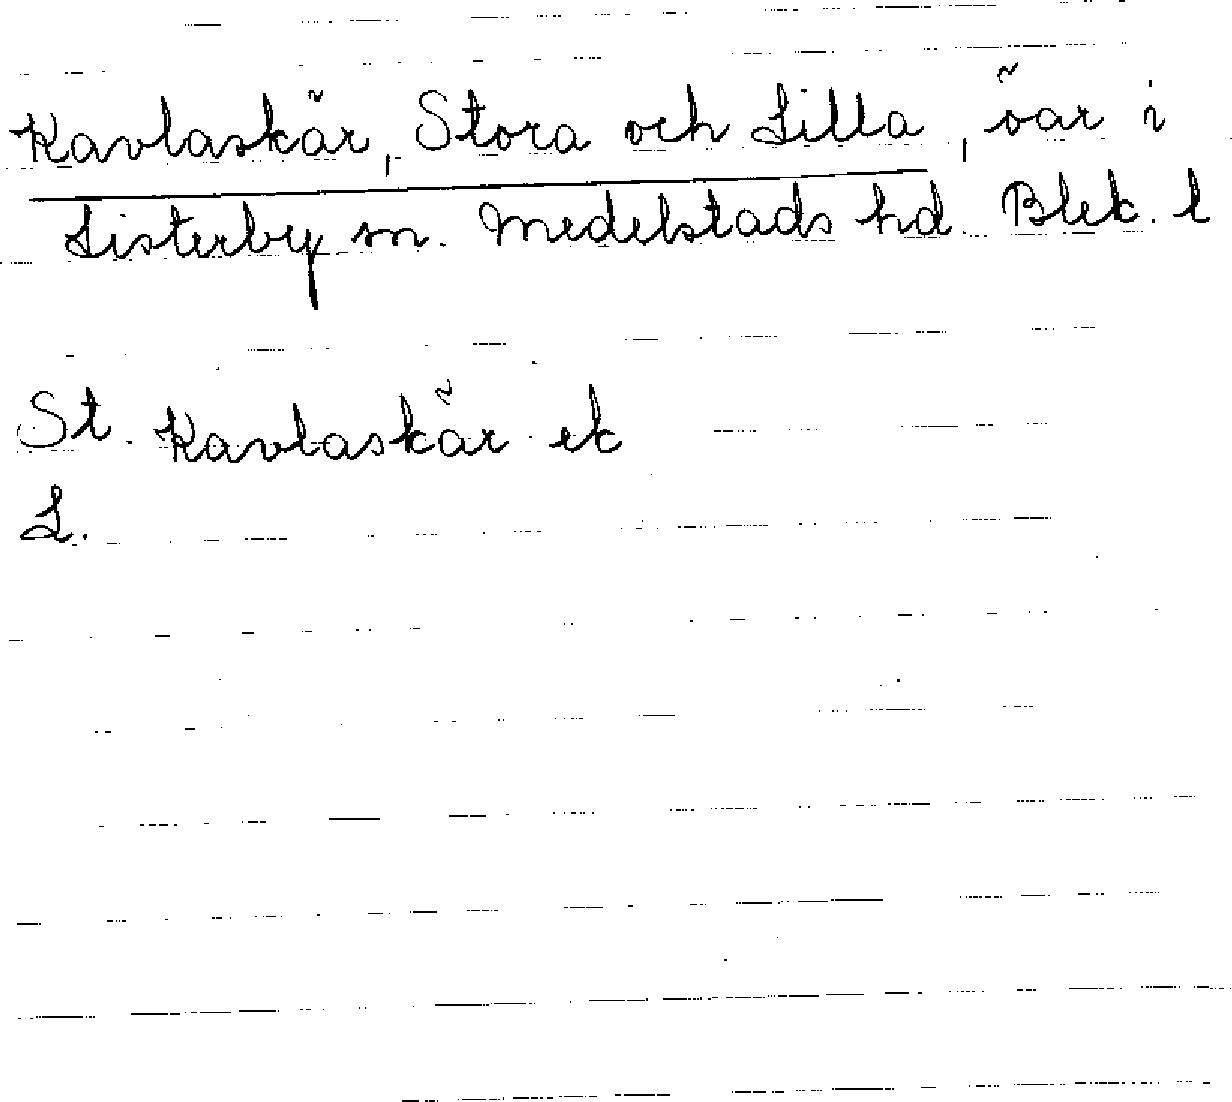 Kavlaskär, Stora och Lilla, öar i
Listerby sn. Medelstads hd. Blek. l
St. Kavlaskär ek
L.